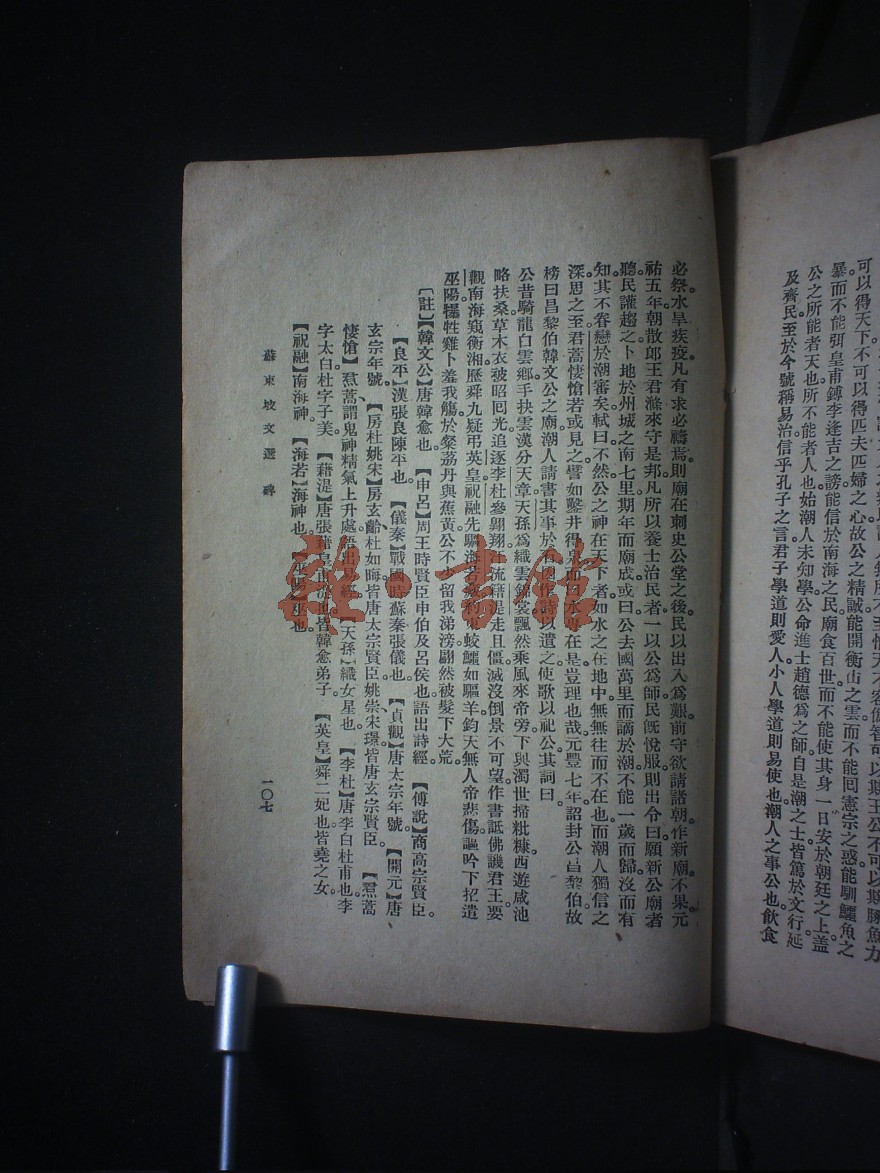 可以得天下不可以得匹夫匹婦之心故公之精誠能開衡山之雲而不能囘憲宗之惑能馴鱷魚之
暴而不能弭皇甫鎛李逢吉之謗能信於南海之民廟食百世而不能使其身一日安於朝廷之上蓋
公之所能者天也所不能者人也始潮人未知學公命進士趙德爲之師自是潮之士皆篤於文行延
及齊民至於今號稱易治信乎孔子之言君子學道則愛人小人學道則易使也潮人之事公也飲食
必祭水旱疾疫凡有求必禱焉則廟在刺史公堂之後民以出入爲艱前守欲請諸朝作新廟不果元
祐五年朝散郎王君滌來守是邦凡所以養士治民者一以公爲師民旣悅服則出令曰願新公廟者
聽民讙趨之卜地於州城之南七里期年而廟成或曰公去國萬里而謫於潮不能一歲而歸沒而有
知其不眷戀於潮審矣軾曰不然公之神在天下者如水之在地中無無往而不在也而潮人獨信之
深思之至君蒿悽愴若或見之譬如鑿井得泉而曰水專在是豈理也哉元豐七年詔封公昌黎伯故
榜曰昌黎伯韓文公之廟潮人請書其事於石因作詩以遺之使歌以祀公其詞曰
公昔騎龍白雲鄉手抉雲漢分天章天孫爲織雲錦裳飄然乘風來帝旁下與濁世掃粃糠西遊咸池
略扶桑草木衣被昭囘光追逐李杜參翺翔汗流籍湜走且僵滅沒倒景不可望作書詆佛譏君王要
觀南海窺衡湘歷舜九疑弔英皇祝融先驅海若藏約束蛟鱷如驅羊鈞天無人帝悲傷謳吟下招遣
巫陽犦牲雞卜羞我觴於粲荔丹與蕉黃公不少留我涕滂翩然被髮下大荒
【註】【韓文公】唐韓愈也。【申呂】周王時賢臣申伯及呂侯也。語出詩經。【傅說】商高宗賢臣。
【良平】漢張良陳平也。【儀秦】戰國時蘇秦張儀也。【貞觀】唐太宗年號。【開元】唐
玄宗年號。【房杜姚宋】房玄齡杜如晦皆唐太宗賢臣姚崇宋璟皆唐玄宗賢臣。【焄蒿
悽愴】焄蒿謂鬼神精氣上升處語出 經。【天孫】織女星也。【李杜】唐李白杜甫也。李
字太白杜字子美。【藉湜】唐張藉皇甫湜也皆韓愈弟子。【英皇】舜二妃也皆堯之女。
【祝融】南海神。【海若】海神也。【巫陽】巫也。
蘇東坡文選 碑
一〇七
雜·書館